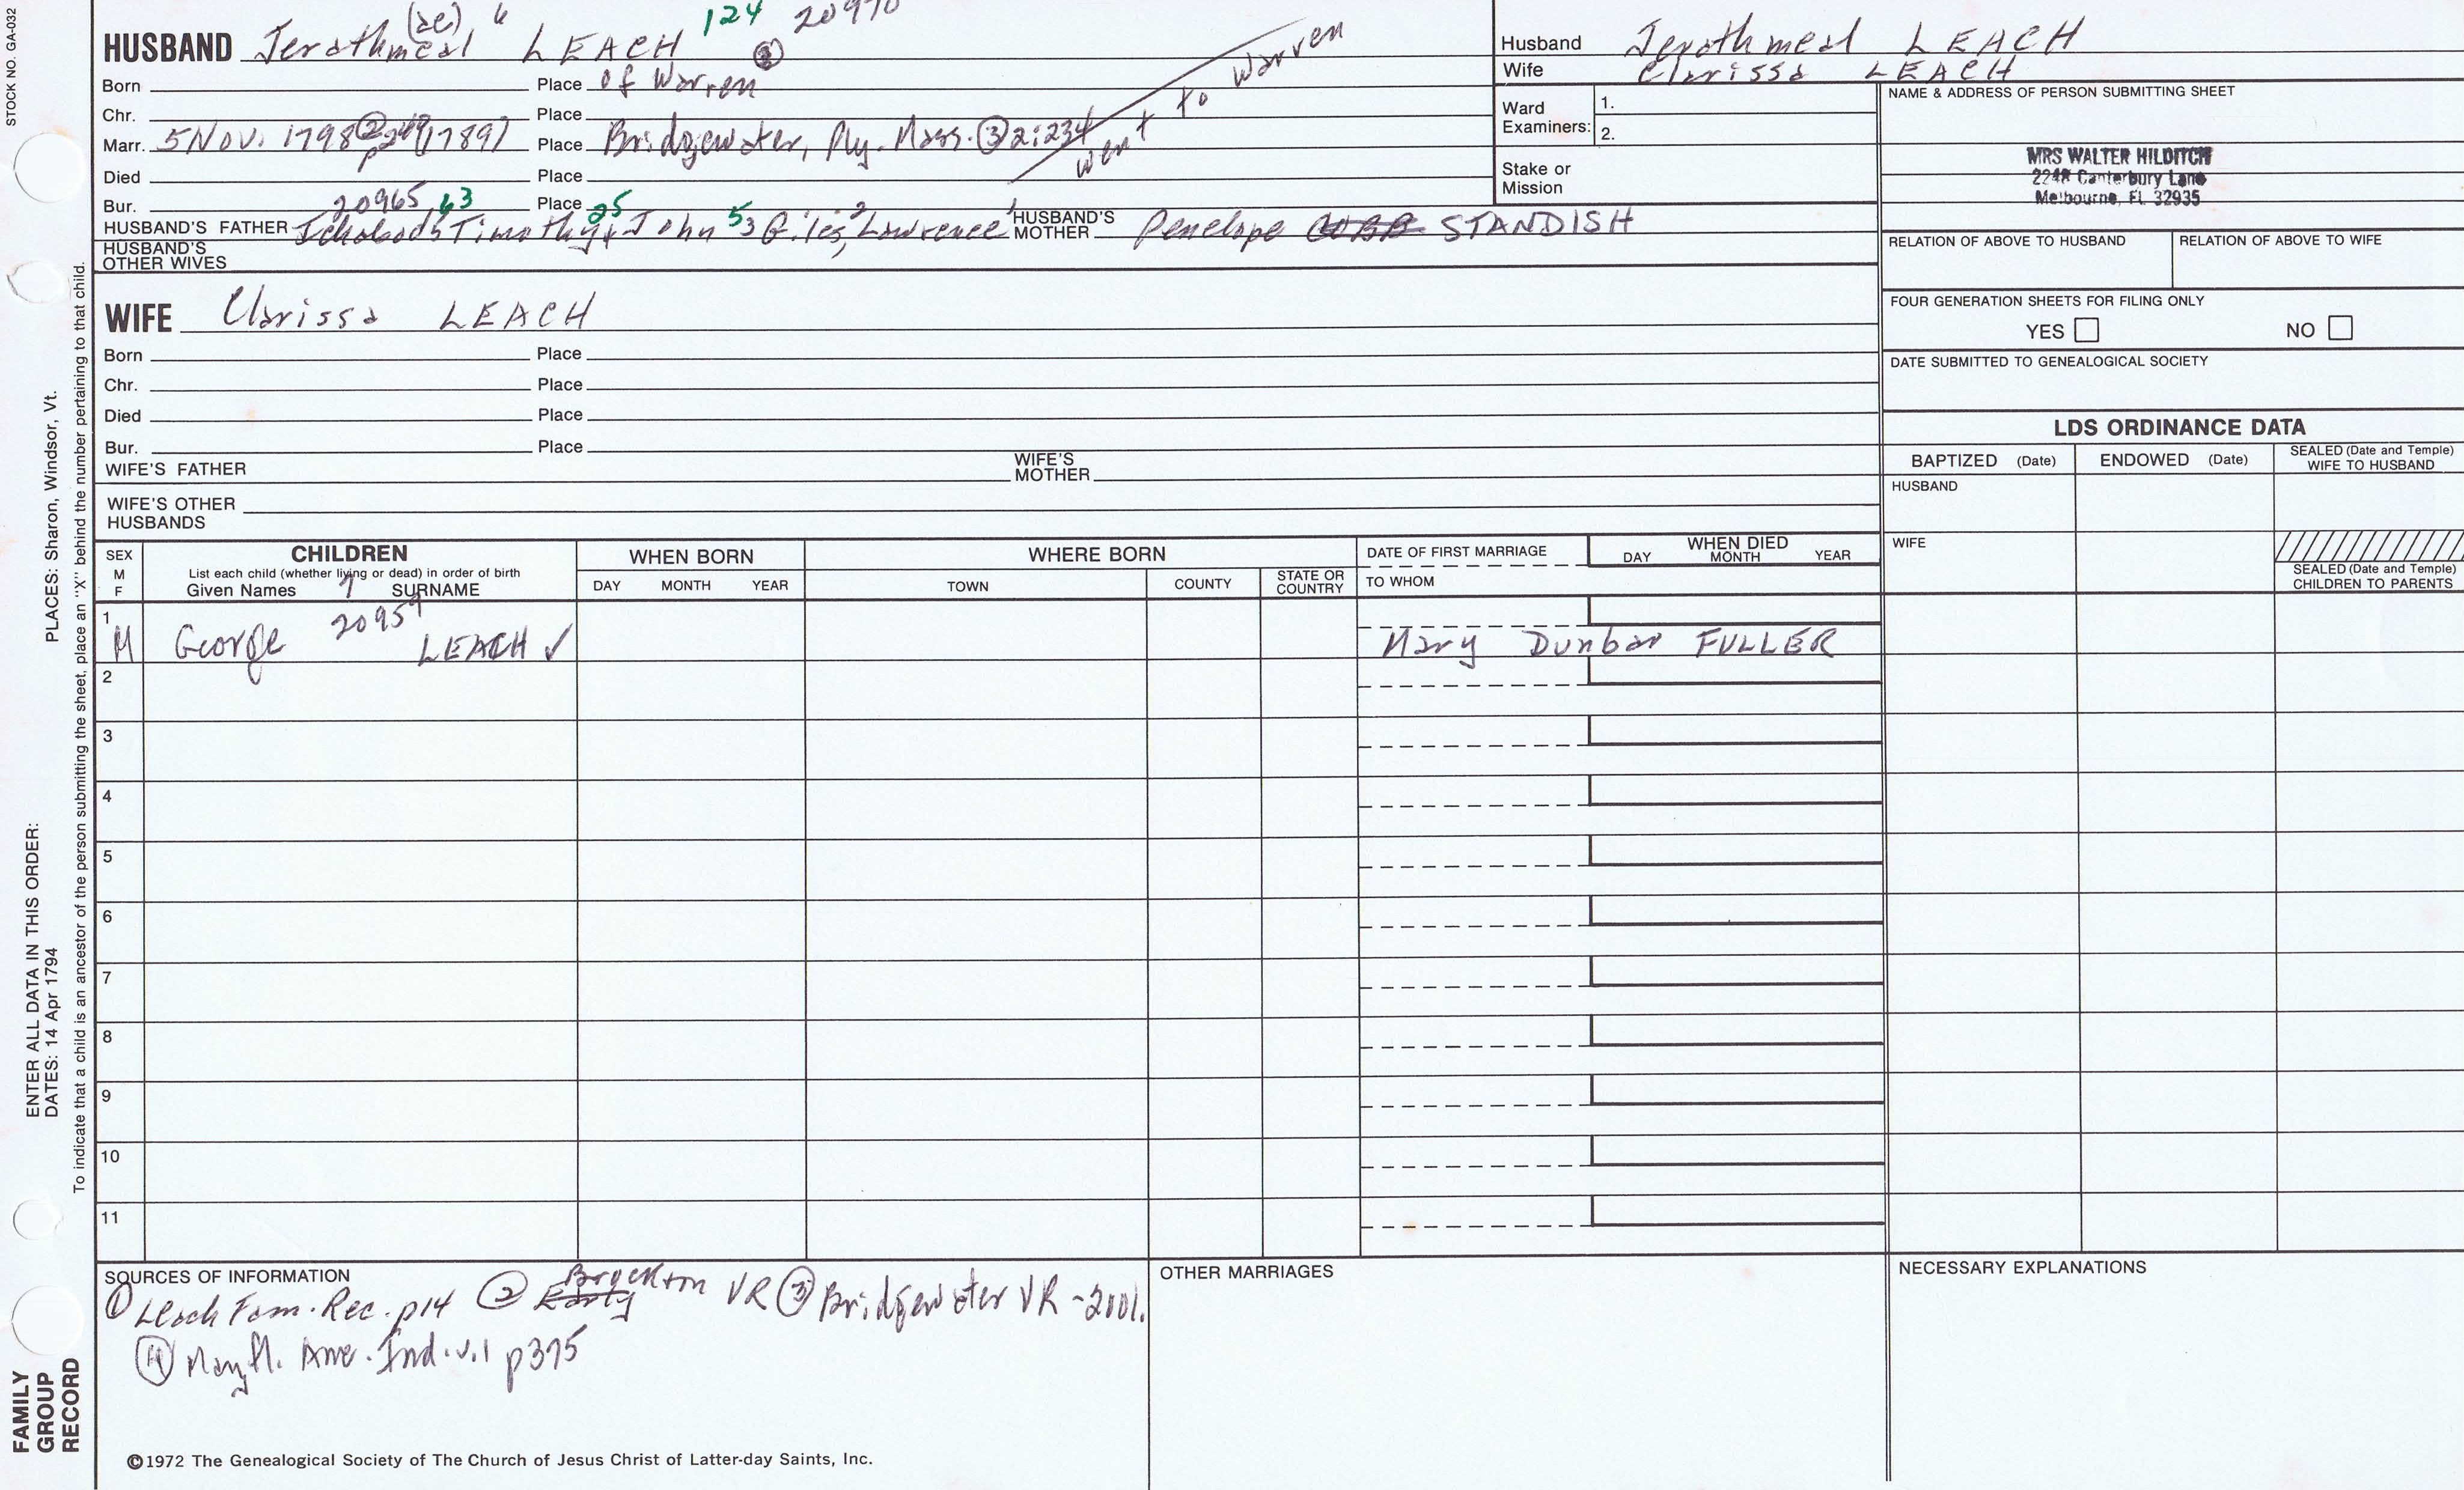 STOCK NO. GA-032
HUSBAND Jerathmeal (ae) 6 LEACH 124 20970
Born Place of Warren ②
Chr. Place
Marr. 5 Nov. 1798 ② p249 (1789) Place Bridgewater, Ply. Mass. ③ 2:234
went to Warren
Died Place
Bur. Place
20965 63 25
HUSBAND'S FATHER Ichabod5 Timothy4 John 53 Giles,2 Lawrence1 HUSBAND'S MOTHER Penelope COBB STANDISH
HUSBAND'S OTHER WIVES
WIFE Clarissa LEACH
Born Place
Chr. Place
Died Place
Bur. Place
WIFE'S FATHER WIFE'S MOTHER
WIFE'S OTHER HUSBANDS
Husband Jerathmeal LEACH
Wife Clarissa LEACH
Ward Examiners: 1.
2.
Stake or Mission
NAME & ADDRESS OF PERSON SUBMITTING SHEET
MRS WALTER HILDITCH
2248 Canterbury Lane
Melbourne, FL 32935
RELATION OF ABOVE TO HUSBAND RELATION OF ABOVE TO WIFE
FOUR GENERATION SHEETS FOR FILING ONLY
YES NO
DATE SUBMITTED TO GENEALOGICAL SOCIETY
LDS ORDINANCE DATA
BAPTIZED (Date) ENDOWED (Date) SEALED (Date and Temple) WIFE TO HUSBAND
HUSBAND
WIFE
SEALED (Date and Temple) CHILDREN TO PARENTS
SEX M F
CHILDREN
List each child (whether living or dead) in order of birth
Given Names SURNAME
WHEN BORN
DAY MONTH YEAR
WHERE BORN
TOWN COUNTY STATE OR COUNTRY
DATE OF FIRST MARRIAGE
TO WHOM
WHEN DIED
DAY MONTH YEAR
1 M George 7 20959 LEACH ✓ Mary Dunbar FULLER
2
3
4
5
6
7
8
9
10
11
SOURCES OF INFORMATION
① Leach Fam. Rec. p14 ② Early Brockton VR ③ Bridgewater VR - 2001.
④ Mayfl. Ame. Ind. v.1 p375
OTHER MARRIAGES
NECESSARY EXPLANATIONS
©1972 The Genealogical Society of The Church of Jesus Christ of Latter-day Saints, Inc.
PLACES: Sharon, Windsor, Vt.
To indicate that a child is an ancestor of the person submitting the sheet, place an "X" behind the number pertaining to that child.
ENTER ALL DATA IN THIS ORDER:
DATES: 14 Apr 1794
FAMILY
GROUP
RECORD